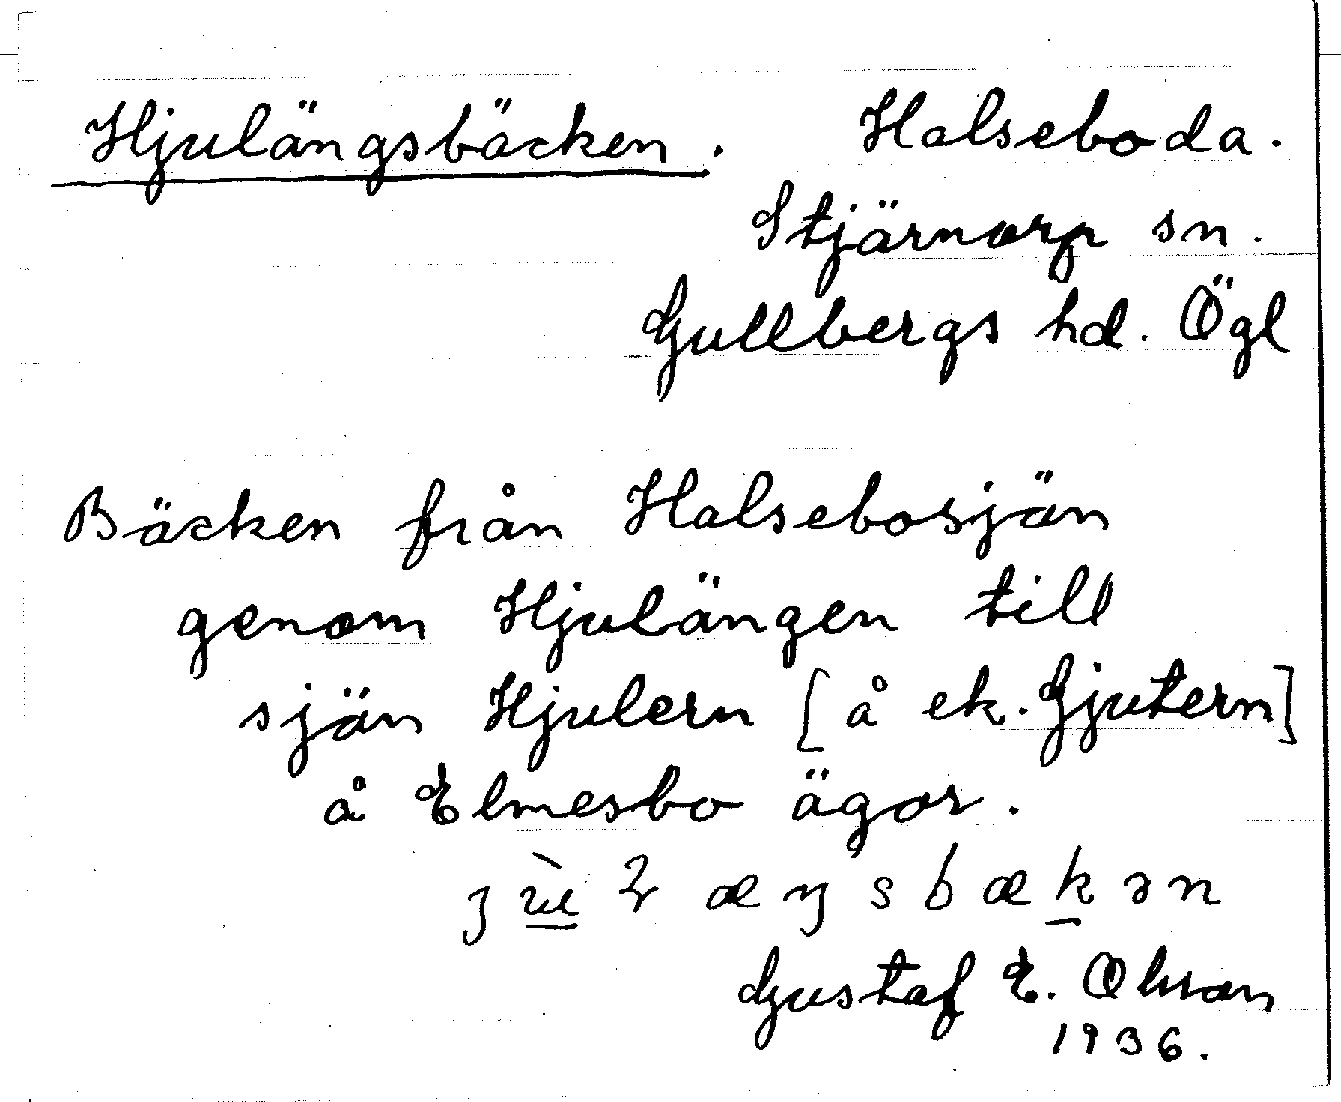 Hjulängsbäcken. Halseboda.
Stjärnorp sn.
Gullbergs hd. Ögl
Bäcken från Halsebosjön
genom Hjulängen till
sjön Hjulern [å ek. Gjutern]
å Elmesbo ägor.
Gustaf E. Olsson
1936.